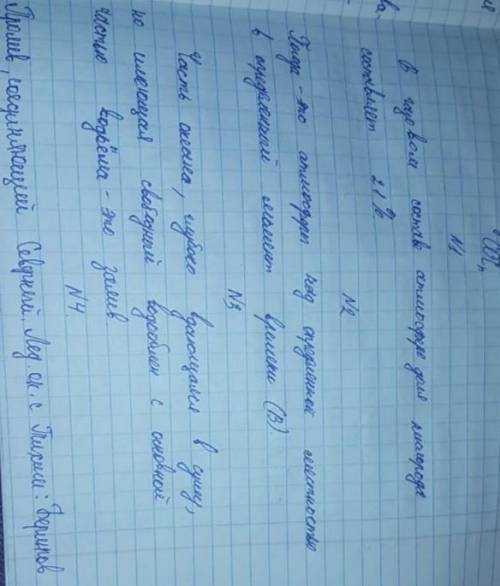 №1
В газовом составе атмосфере доля кислорода
составляет 21%
№2
Пода - это атмосфера над определеной местностью
в определенный момент времени (В).
№3
Часть океана, глубоко вдающаяся в сушу,
но имеющая свободный водообмен с основной
частью водоёма - это залив
№4.
Пролив, соединяющий Северный. Лед ок. с Тихим: Берингов